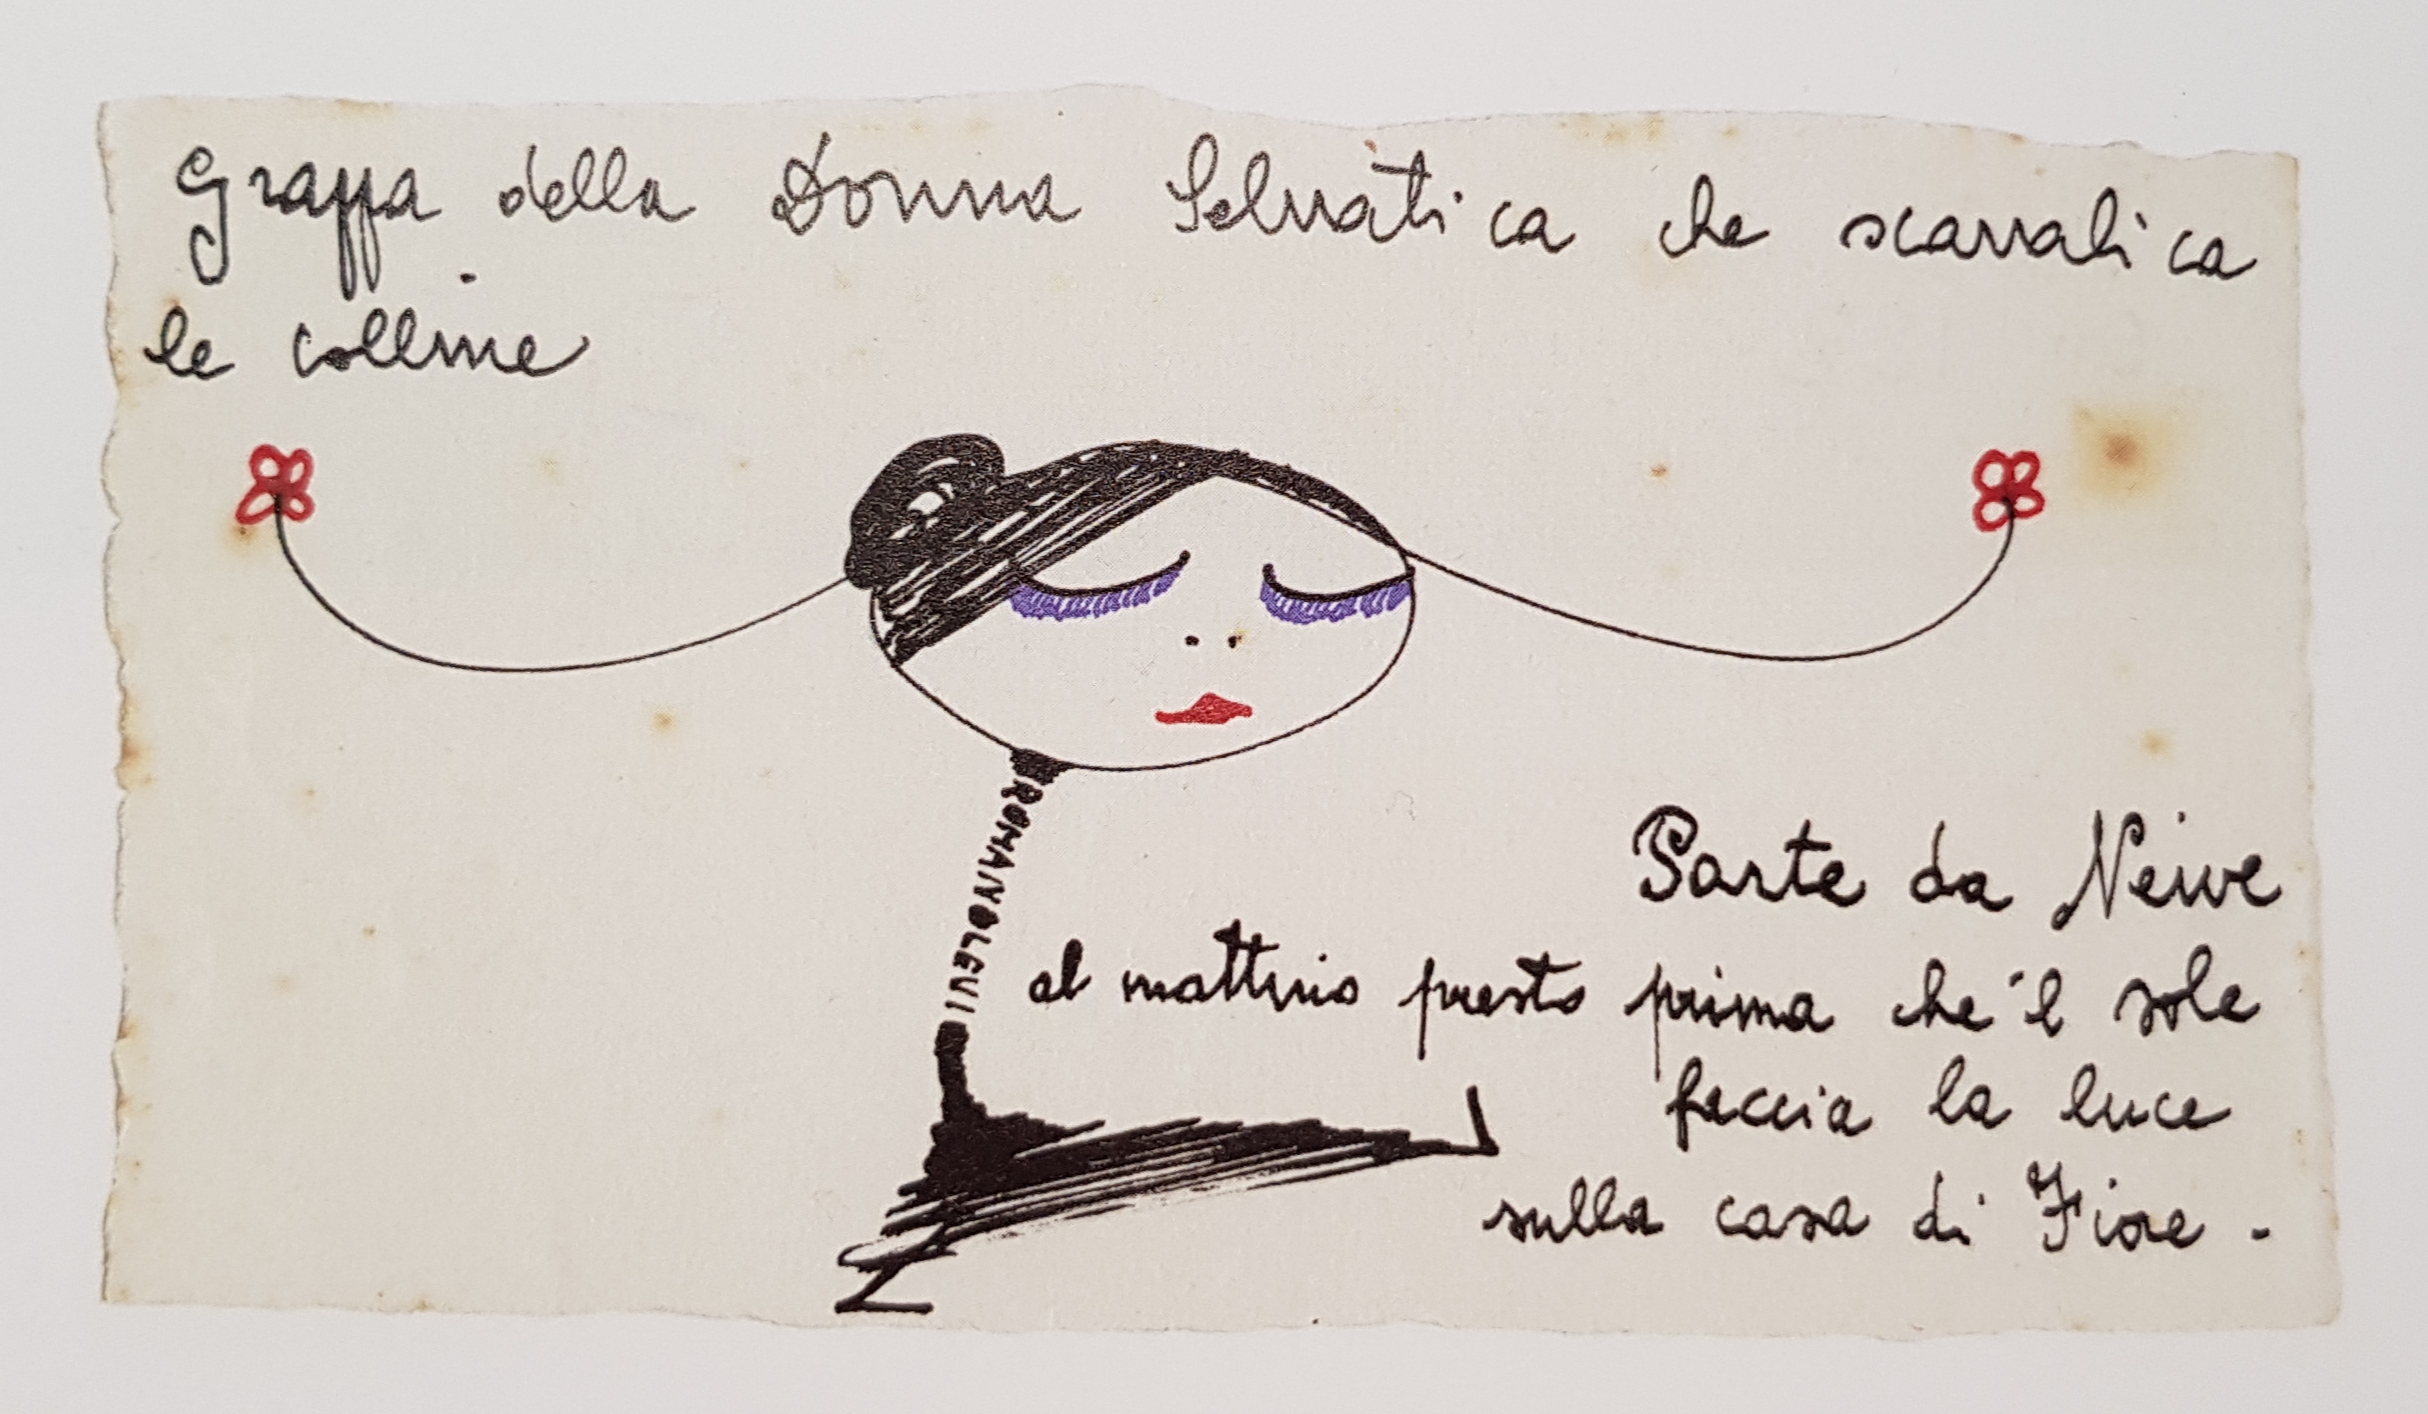 Grappa della Donna Selvatica che scavalica
le colline
ROMANO LEVI
Parte da Neive
al mattino presto prima che'l sole
faccia la luce
sulla casa di Fiore -